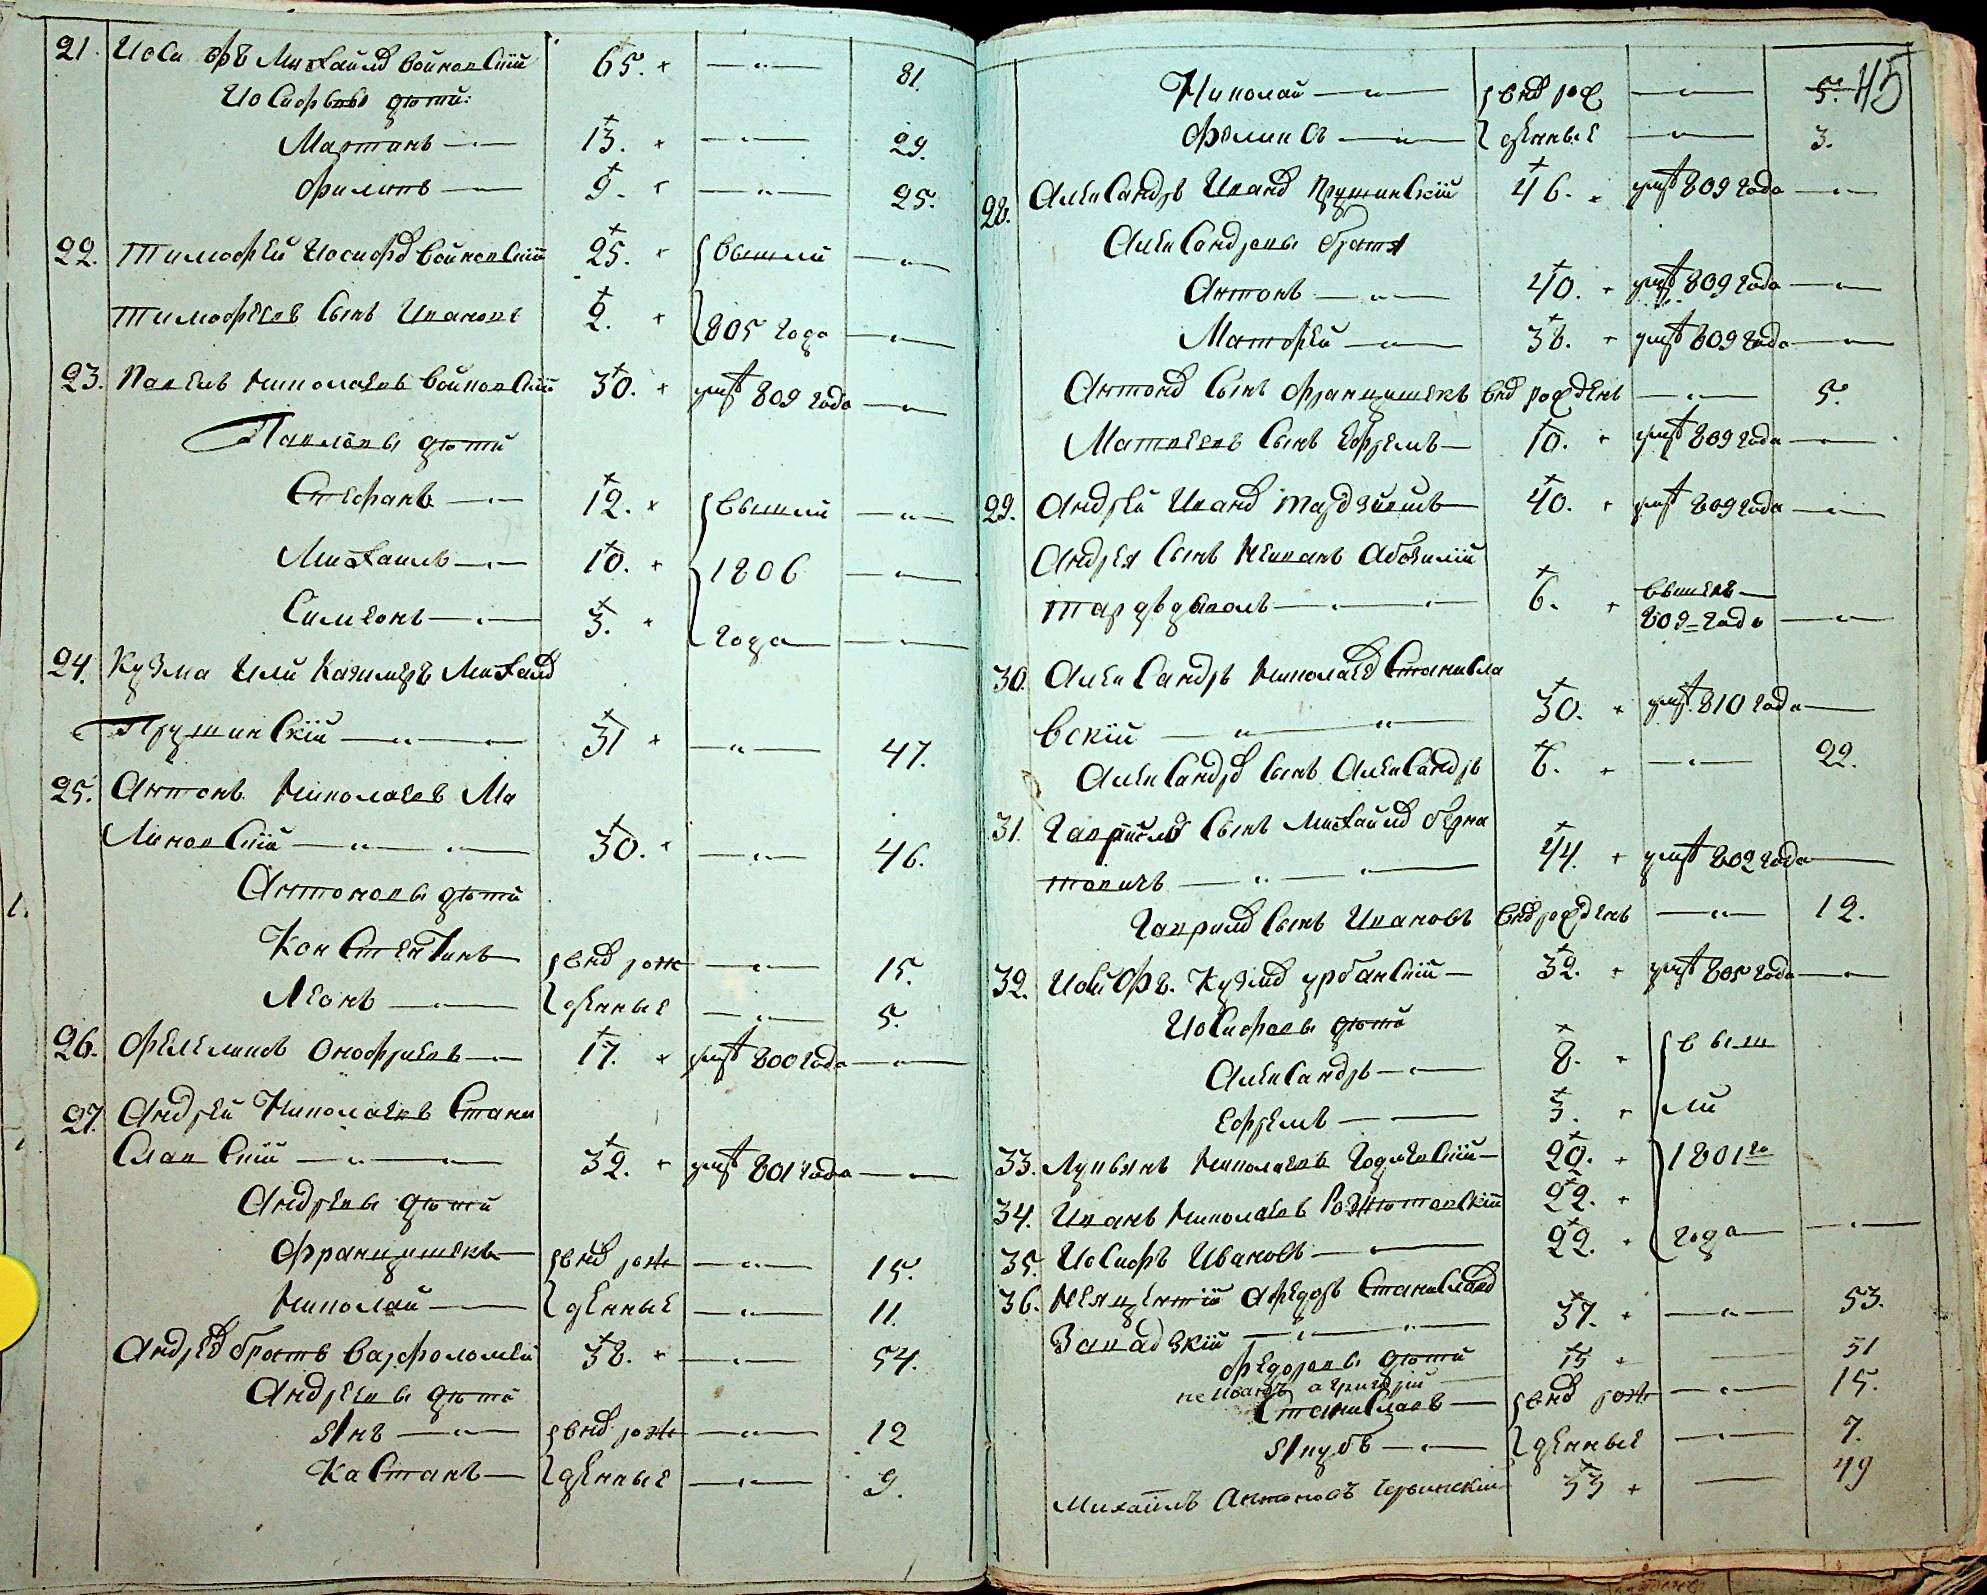 21. Иосифъ Михайлов Войновскій 65. 81.
Иосифовы дѣти:
Мартинъ 13. 29.
Филипъ 9. 25.
22. Тимофей Иосифов Войновскій 25. вышли
Тимофеевъ сынъ Иванъ 2. 805 года
23. Павелъ Николаевъ Войновскій 30. умре 809 года
Павловы дѣти
Стефанъ 12. вышли
Михаилъ 10. 1806
Симеонъ 3. года
24. Кузма или Казимеръ Михайлов
Прушинскій 31 47.
25. Антонъ Николаевъ Ма
линовскій 30. 46.
Антоновы дѣти
Констентинъ внов рож 15.
Леонъ денные 5.
26. Онофріевъ 17. умре 800 года
27. Андрей Николаевъ Стани
славскій 32. умре 801 года
Андреевы дѣти
Францишекъ внов рож 15.
Николай денные 11.
Андреев братъ Варфоломей 38. 54.
Андреевы дѣти
Янъ внов рож 12
Кастанъ денные 9.
45
Николай внов рож 5.
Феликсъ денные 3.
28. Александръ Иванов Прушинскій 46. умре 809 года
Александровы братя
Антонъ 40. умре 809 года
Матфей 38. умре 809 года
Антонов сынъ Францишекъ внов рожденъ 5.
Матвеевъ сынъ Ефремъ 10. умре 809 года
29. Андрей Иванов 40. умре 809 года
Андрея сынъ
6. вышелъ
809 года
30. Александръ Николаев Станисла
вскій 30. умре 810 года
Александров сынъ Александръ 6. 22.
31. Гавриилъ сынъ Михайлов Берна
товичъ 44. умре 802 года
Гаврилов сынъ Иванъ внов рожденъ 12.
32. Иосифъ Кузмов Урбанскій 32. умре 805 года
Иосифовы дѣти
Александръ 8. выш
Ефремъ 3. ли
33. Лукьянъ Николаевъ 20. 1801го
34. Иванъ Николаевъ 22.
35. Иосифъ Ивановъ 22. года
36. Федоръ Станиславов
Завадзкій 37. 53.
Федоровы дѣти 15 31
не Иванъ а Григорій
Станиславъ внов рож 15.
Якубъ денные 7.
Михаилъ Антоновъ Червинскій 33 49